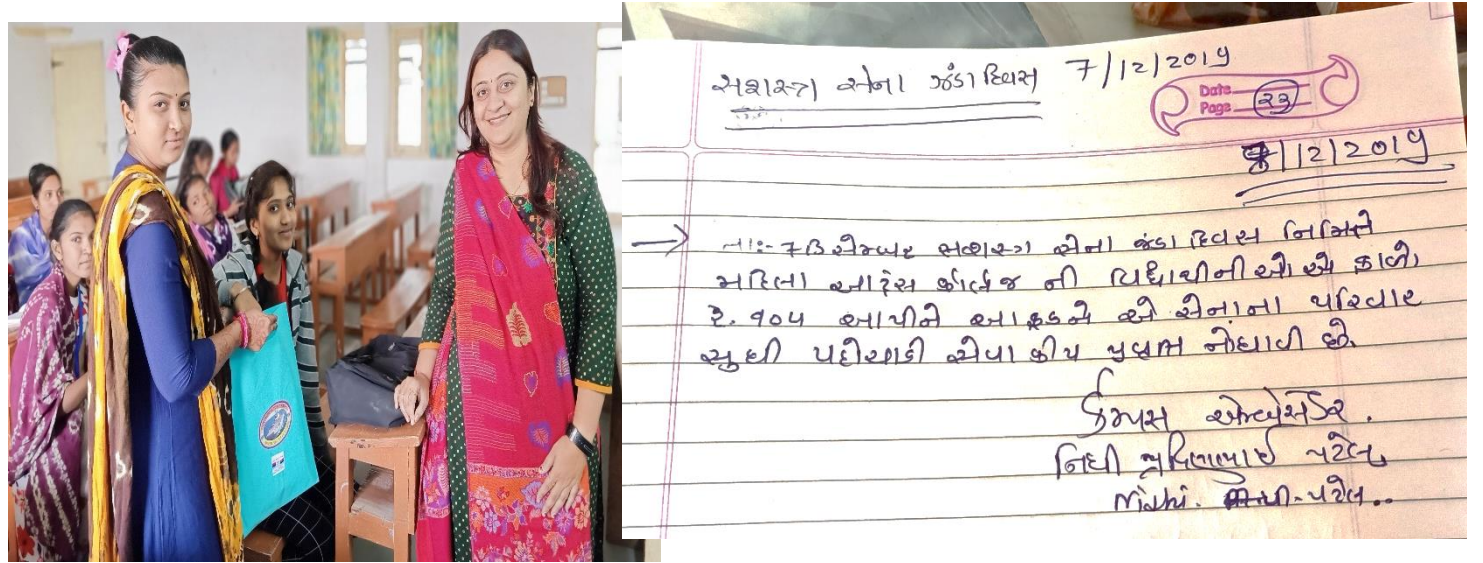 સશસ્ત્ર સેના ઝંડા દિવસ 7/12/2019
Date
Page ૨૩
/12/2019
તાઃ- 7 ડિસેમ્બર સશસ્ત્ર સેના ઝંડા દિવસ નિમિત્તે
મહિલા આર્ટસ કોલેજ ની વિદ્યાર્થીની ઓ એ ફાળો
રૂ. ૧૦૫ આપીને આ ફંડને એ સેનાના પરિવાર
સુધી પહોંચાડી સેવા કીય નોંધાવી છે.
કેમ્પસ એમ્બેસેડર.
નિધી પટેલ
Nidhi. પટેલ..